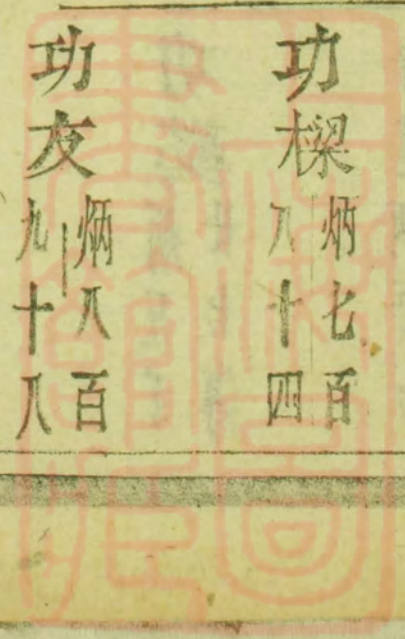 功樑炳七百八十四
功友炳八百九十八